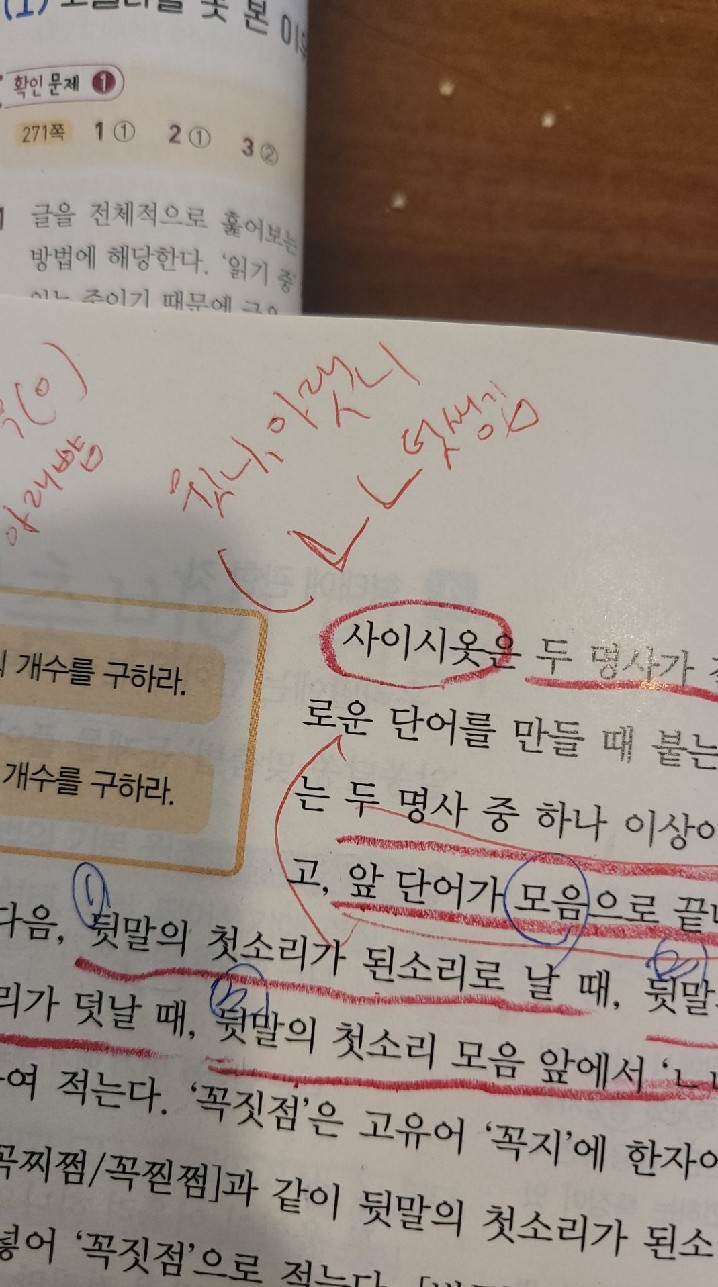 (1)
확인 문제 1
271쪽 1 ① 2 ① 3 ②
글을 전체적으로 훑어보는
방법에 해당한다. ‘읽기 중
이는 중이기 때문에
(O)
아래뺨
윗니, 아랫니
ㄴㄴ덧생김
개수를 구하라.
개수를 구하라.
사이시옷은 두 명사가
로운 단어를 만들 때 붙는
는 두 명사 중 하나 이상이
고, 앞 단어가 모음으로 끝나
①
다음, 뒷말의 첫소리가 된소리로 날 때, 뒷말
리가 덧날 때, 뒷말의 첫소리 모음 앞에서 ‘ㄴㄴ
여 적는다. ‘꼭짓점’은 고유어 ‘꼭지’에 한자어
꼭찌쩜/꼭찓쩜]과 같이 뒷말의 첫소리가 된소
넣어 ‘꼭짓점’으로 적는다.